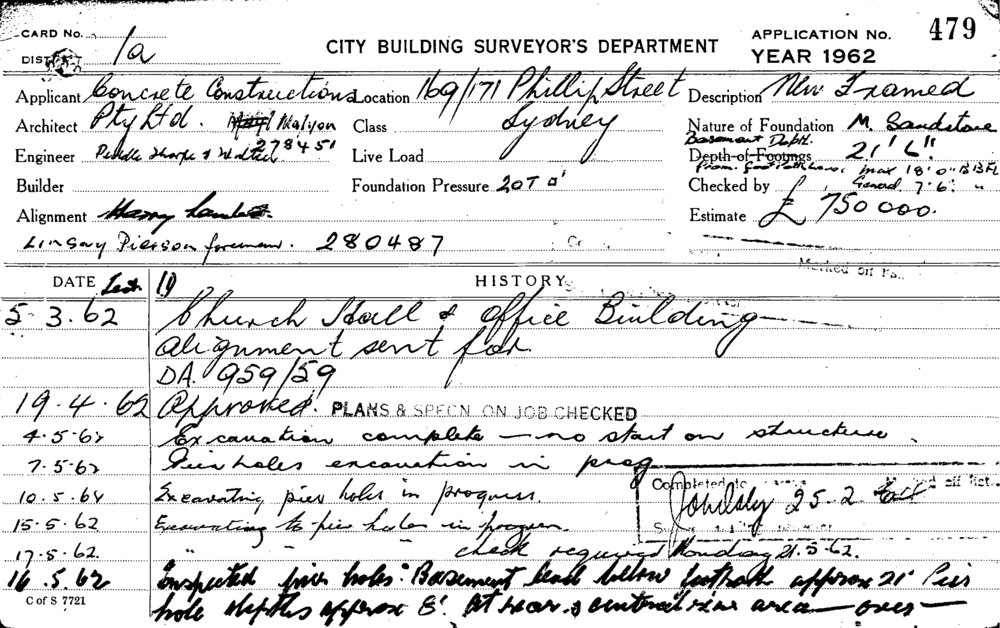 CARD No.
DISTRICT 1a
CITY BUILDING SURVEYOR'S DEPARTMENT
APPLICATION No. 479
YEAR 1962
Applicant Concrete Constructions
Location 169/171 Phillip Street
Description New Framed
Architect Pty Ltd.
Class Sydney
Nature of Foundation M. Sandstone
278451
Basement Depth
Engineer
Live Load
Depth of Footings 21' 6".
Builder
Foundation Pressure 20T
Checked by
Alignment Harry
Estimate £750000.
Lindsay Pierson foreman. 280487
DATE
HISTORY
5-3.62 Church Hall & Office Building
alignment sent for.
DA. 959/59
19.4.62 Approved. PLANS & SPECN. ON JOB CHECKED
4.5.62 Excavation complete – no start on structure.
7.5.62 Pier holes excavation in prog
Completed
25-2
10.5.62 Excavating pier holes in progress.
15.5.62 Excavating to pier holes in progress.
17.5.62. " " check required Monday 21.5.62.
16.5.62 Inspected pier holes. Basement level below footpath approx 21' Pier
C of S 7721
hole depths approx 8'. At rear & central area